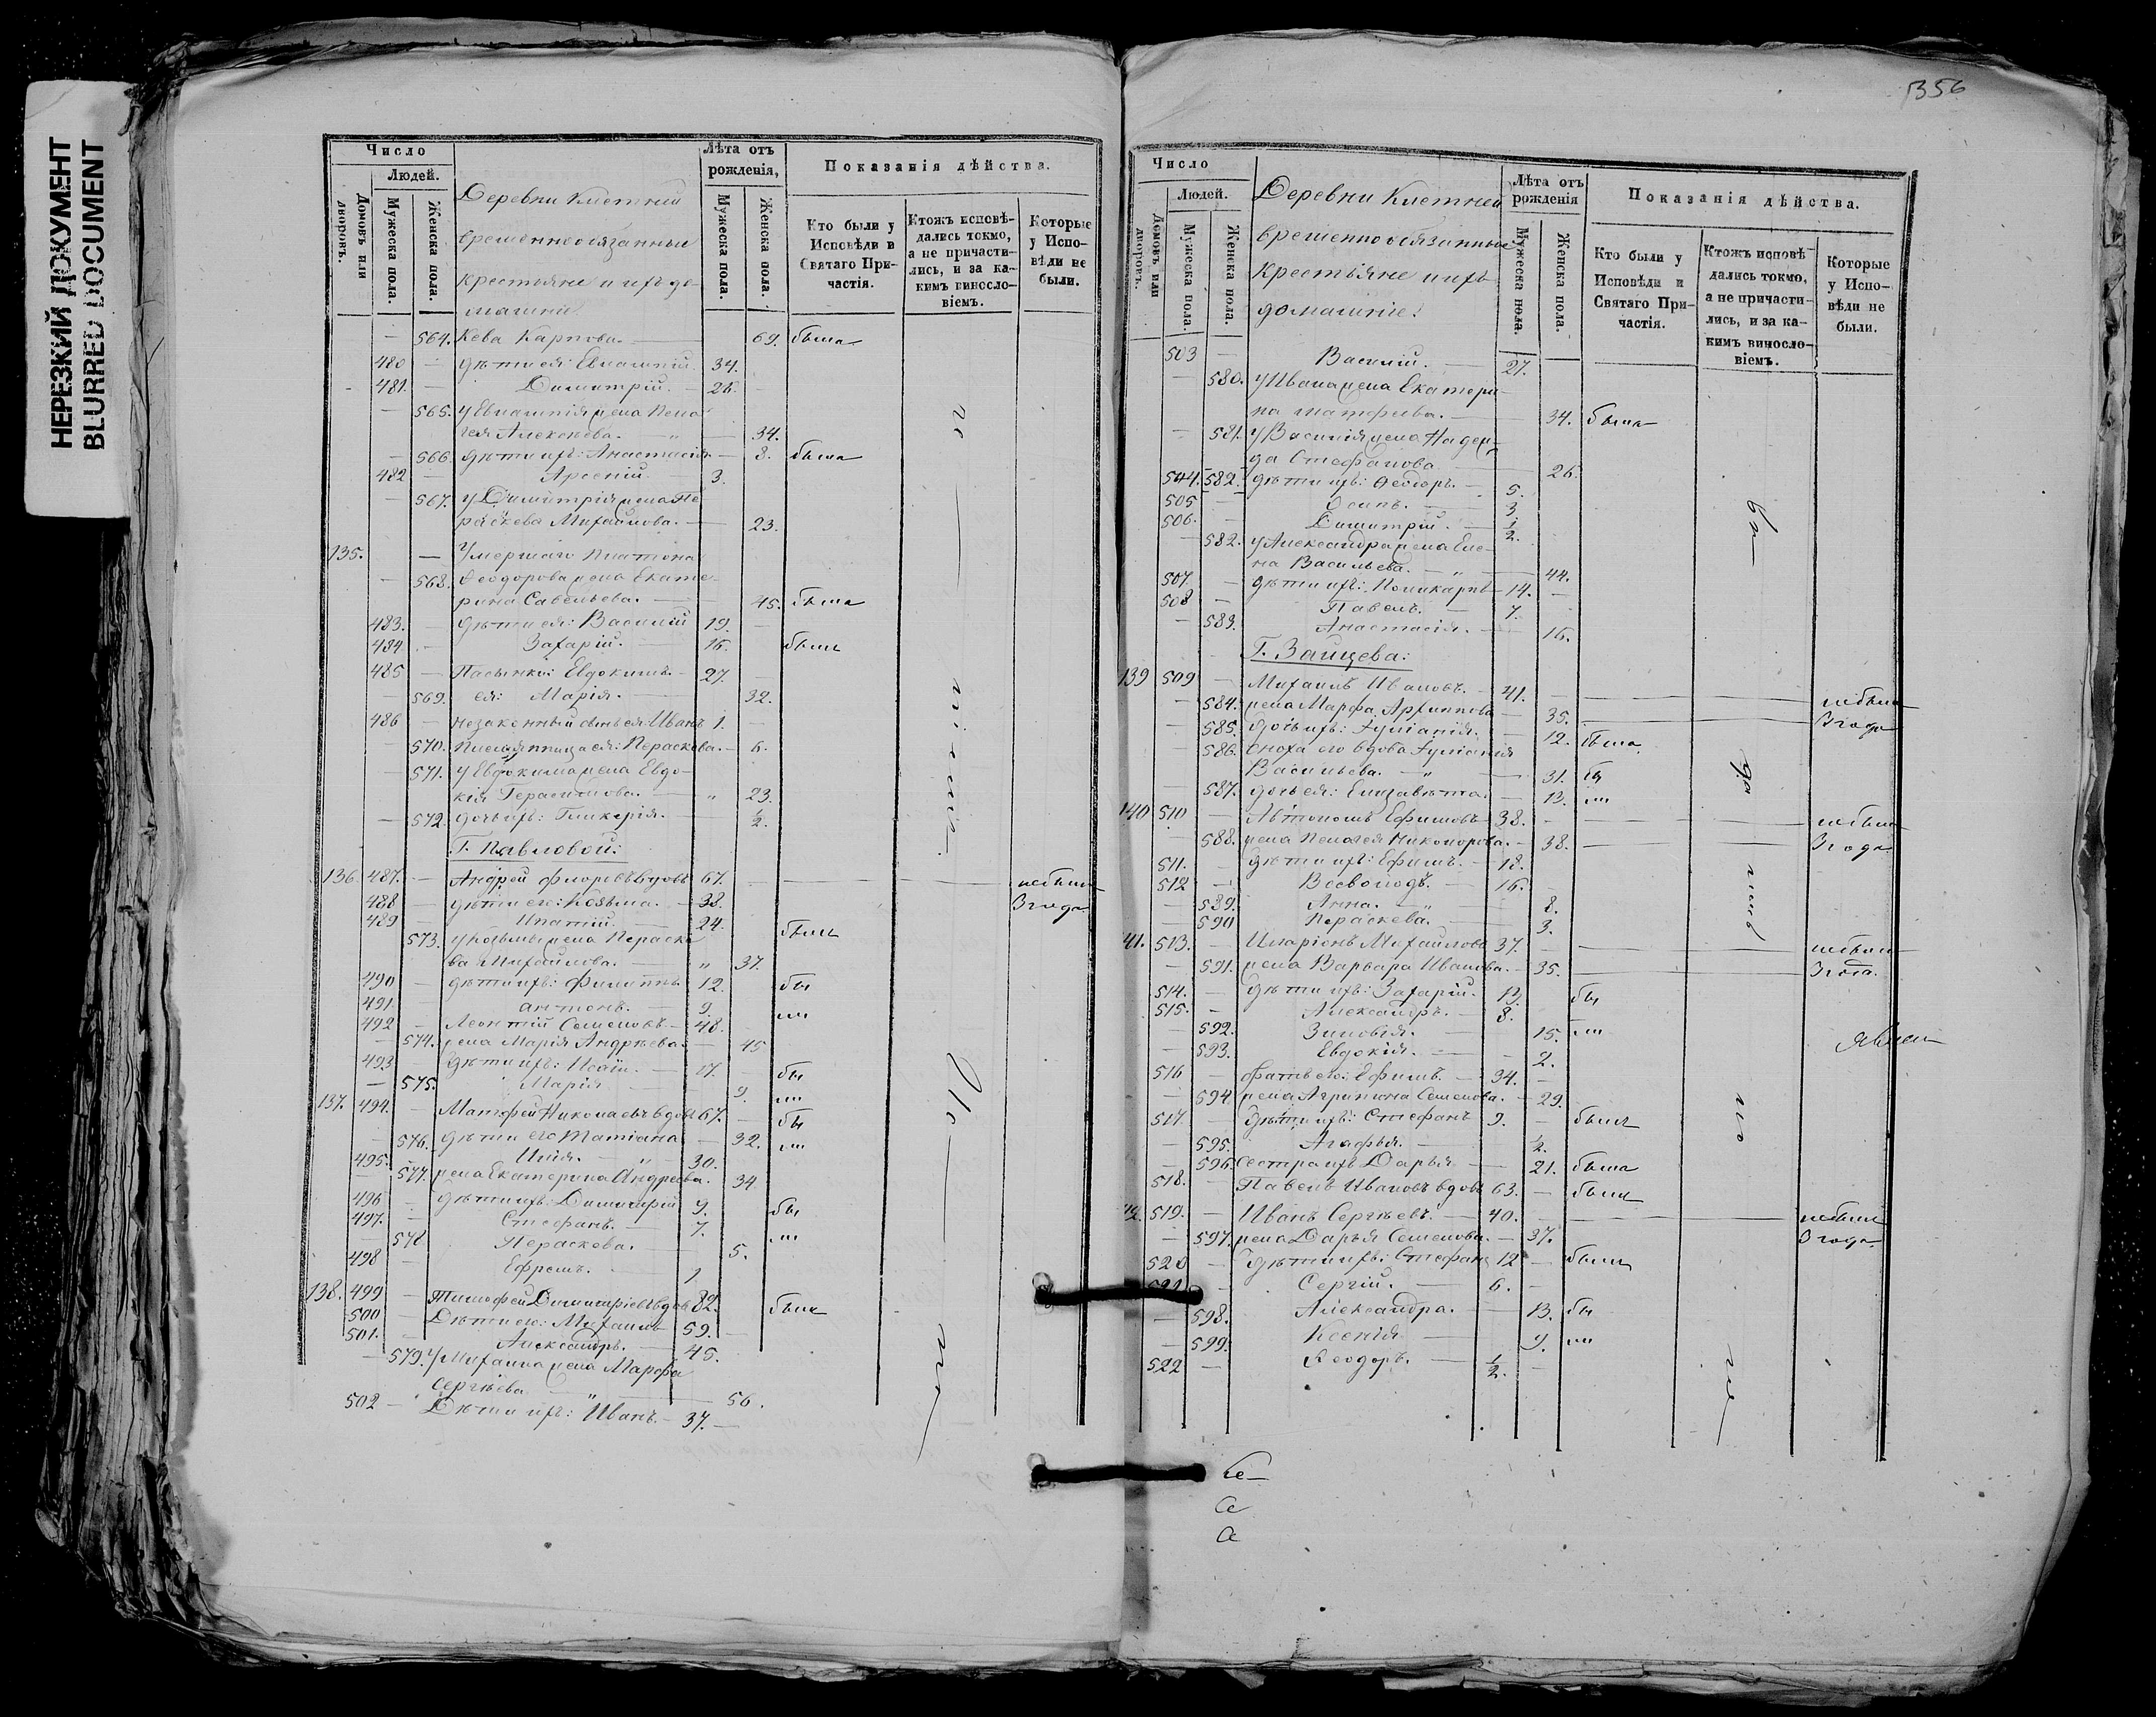 НЕРЕЗКИЙ ДОКУМЕНТ
BLURRED DOCUMENT
Число
Людей.
Домовъ или дворовъ.
Мужеска пола.
Женска пола.
Деревни Клетней
временнообязанные
крестьяне и ихъ до-
машнии
Лѣта отъ рожденія,
Мужеска пола.
Женска пола.
Показанія дѣйства.
Кто были у Исповѣди и Святаго Причастія.
Ктожъ исповѣ-
дались токмо,
а не причасти-
лись, и за ка-
кимъ виносло-
віемъ.
Которые
у Испо-
вѣди не
были.
564. Карпова. 69. была
480 дѣти ея: 34.
481. Димитрій. 26.
565. жена Пела-
гея 34.
566. дѣти ихъ: Анастасія 8. была
482 Арсеній. 3.
567. У Димитрія жена Пе-
раскева Михайлова. 23.
135. Умершаго Платона
568. Ѳеодорова жена Екате-
рина Савельева. 45. была
483. дѣти ея: Василій 19.
484 Захарій. 16. были
485 Пасынки: Евдокимъ. 27.
569. ея: Марія. 32.
486 незаконный сынъ ея: Иванъ 1.
570. ея: Пераскева. 6.
571. У Евдокима жена Евдо-
кія Герасимова. " 23.
572. дочь ихъ: Гликерія. ½.
Г. Павловой:
136. 487. Андрей Флоровъ вдовъ 67. небыли
488 дѣти его: Козьма. 38. 3 года
489 Ипатій. 24. были
573. У Козьмы жена Параске
ва Михайлова. " 37.
490 дѣти ихъ: Филиппъ 12. бы
491 Антонъ. 9. ли
492 Леонтій Семеновъ 48.
574. жена Марія Андрѣева. 45
493 дѣти ихъ: Исаій. 17. бы
575. Марія 9. ли
137. 494. Матфей Николаевъ вдовъ 67. бы
576. дѣти его Татіана 32. ли
495. Илія. " 30.
577. жена Екатерина Андреева. 34
496 дѣти ихъ: Димитрій 9. бы
497. Стефанъ. 7.
578 Пераскева. 5. ли
498 Ефремъ. 1
138. 499 Тимофей Димитріевъ вдовъ 82. были
500 Дѣти его: Михаилъ 59.
501. Александръ. 45.
579. У Михаила жена Марфа
Сергѣева " 56.
502 Дѣти ихъ: Иванъ 37.
356
Число
Людей.
Домовъ или дворовъ.
Мужеска пола.
Женска пола.
Деревни Клетней
временнообязанные
крестьяне и ихъ
домашніе:
Лѣта отъ рожденія
Мужеска пола.
Женска пола.
Показанія дѣйства.
Кто были у Исповѣди и Святаго Причастія.
Ктожъ исповѣ
дались токмо,
а не причасти-
лись, и за ка-
кимъ винослo-
віемъ.
Которые
у Испо-
вѣди не
были.
503 Василій. 27.
580. У Ивана жена Екатери-
на Матфеева. 34. была
581. У Василія жена Надеж-
да Стефанова 26.
504. 582. дѣти ихъ: Ѳеодоръ. 5.
505 Осипъ. 3.
506. Димитрій. ½.
582. У Александра жена Еле-
на Васильева. " 44.
507. дѣти ихъ: Поликарпъ 14.
508 Павелъ. 7.
583. Анастасія. 16.
Г. Зайцева:
139 509 Михаилъ Ивановъ. 41. небыли
584. жена Марфа Архиппова 35. 3 года
585. дочь ихъ: Іуліанія. 12. была
586. сноха его вдова Іуліанія
Васильева. " 31. бы
587. дочь ея: Елизавѣта. 13. ли
140 510 Автономъ Ефимовъ 38. небыли
588. жена Пелагея Никонорова. 38. 3 года
511. дѣти ихъ: Ефимъ. 18.
512 Всеволодъ. 16.
589. Анна. " 8.
590 Пераскева. 3.
41. 513. Иларіонъ Михайловъ 37. небыли
591. жена Варвара Иванова. 35. 3 года.
514. дѣти ихъ: Захарій. 13. бы
515. Александръ. 8.
592. Зиновія. 15. ли
593. Евдокія. 2.
516 братъ его: Ефимъ. 34.
594 жена Агрипина Семенова. 29.
517. дѣти ихъ: Стефанъ 9. были
595. Агафья. ½.
596. сестра ихъ Дарья 21. была
518. Павелъ Ивановъ вдовъ 63. были
42. 519. Иванъ Сергѣевъ. 40. небыли
597. жена Дарья Семенова. 37. 3 года
520 дѣти ихъ: Стефанъ 12 были
521 Сергій. 6.
598. Александра. 13. бы
599. Ксенія 9. ли
522 Ѳеодоръ. ½.